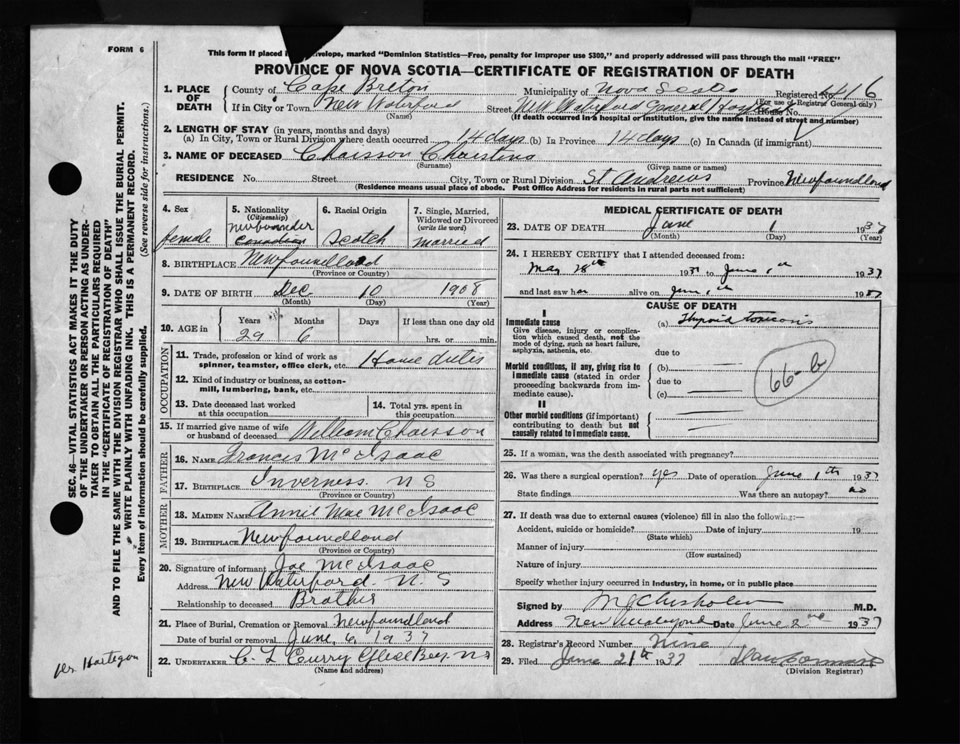 FORM 6
This form if placed in envelope, marked "Dominion Statistics—Free, penalty for improper use $300," and properly addressed will pass through the mail "FREE"
PROVINCE OF NOVA SCOTIA—CERTIFICATE OF REGISTRATION OF DEATH
1. PLACE OF DEATH County of Cape Breton Municipality of Nova Scotia Registered No. 416
(For use of Registrar General only)
If in City or Town New Waterford Street New Waterford General Hospital House No.
(Name) (If death occurred in a hospital or institution, give the name instead of street and number)
2. LENGTH OF STAY (in years, months and days)
(a) In City, Town or Rural Division where death occurred 14 days (b) In Province 14 days (c) In Canada (if immigrant)
3. NAME OF DECEASED Chaisson Christina
(Surname) (Given name or names)
RESIDENCE No. Street City, Town or Rural Division St Andrews Province Newfoundland
(Residence means usual place of abode. Post Office Address for residents in rural parts not sufficient)
4. Sex female
5. Nationality (Citizenship) Canadian
6. Racial Origin Scotch
7. Single, Married, Widowed or Divorced (write the word) married
8. BIRTHPLACE Newfoundland
(Province or Country)
9. DATE OF BIRTH Dec 10 1908
(Month) (Day) (Year)
10. AGE in Years Months Days If less than one day
29 6 hrs. or min.
OCCUPATION
11. Trade, profession or kind of work as spinner, teamster, office clerk, etc. Home duties
12. Kind of industry or business, as cotton-mill, lumbering, bank, etc.
13. Date deceased last worked at this occupation
14. Total yrs. spent in this occupation
15. If married give name of wife or husband of deceased William Chaisson
FATHER
16. NAME Francis McIsaac
17. BIRTHPLACE Inverness N S
(Province or Country)
MOTHER
18. MAIDEN NAME Annie Mae McIsaac
19. BIRTHPLACE Newfoundland
(Province or Country)
20. Signature of informant Joe McIsaac
Address New Waterford N. S
Relationship to deceased Brother
21. Place of Burial, Cremation or Removal Newfoundland
Date of burial or removal June 6 1937
22. UNDERTAKER C L Curry Glace Bay N S
(Name and address)
MEDICAL CERTIFICATE OF DEATH
23. DATE OF DEATH June 1 1937
(Month) (Day) (Year)
24. I HEREBY CERTIFY that I attended deceased from:
May 28th 1937 to June 1st 1937
and last saw her alive on June 1st 1937
CAUSE OF DEATH
I
Immediate cause (a) Thyroid toxicosis
Give disease, injury or complication which caused death, not the mode of dying, such as heart failure, asphyxia, asthenia, etc.
due to
Morbid conditions, if any, giving rise to immediate cause (stated in order proceeding backwards from immediate cause). (b)
due to
(c)
66-b
II
Other morbid conditions (if important) contributing to death but not causally related to immediate cause.
25. If a woman, was the death associated with pregnancy?
26. Was there a surgical operation? yes Date of operation June 1th 1937
State findings Was there an autopsy? no
27. If death was due to external causes (violence) fill in also the following:—
Accident, suicide or homicide? Date of injury 19
(State which)
Manner of injury
(How sustained)
Nature of injury
Specify whether injury occurred in industry, in home, or in public place
Signed by M J Chisholm M.D.
Address New Waterford Date June 2nd 1937
28. Registrar's Record Number Nine
29. Filed June 21th 1937
(Division Registrar)
SEC. 46—VITAL STATISTICS ACT MAKES IT THE DUTY
OF THE UNDERTAKER OR PERSON ACTING AS UNDER-
TAKER TO OBTAIN ALL THE PARTICULARS REQUIRED
IN THE "CERTIFICATE OF REGISTRATION OF DEATH"
AND TO FILE THE SAME WITH THE DIVISION REGISTRAR WHO SHALL ISSUE THE BURIAL PERMIT.
WRITE PLAINLY WITH UNFADING INK. THIS IS A PERMANENT RECORD.
Every item of information should be carefully supplied. (See reverse side for instructions.)